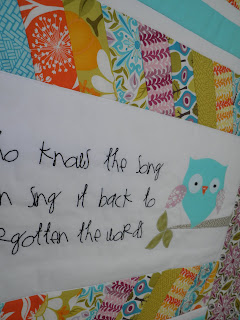 ho knows the song
n sing it back to
rgotten the words